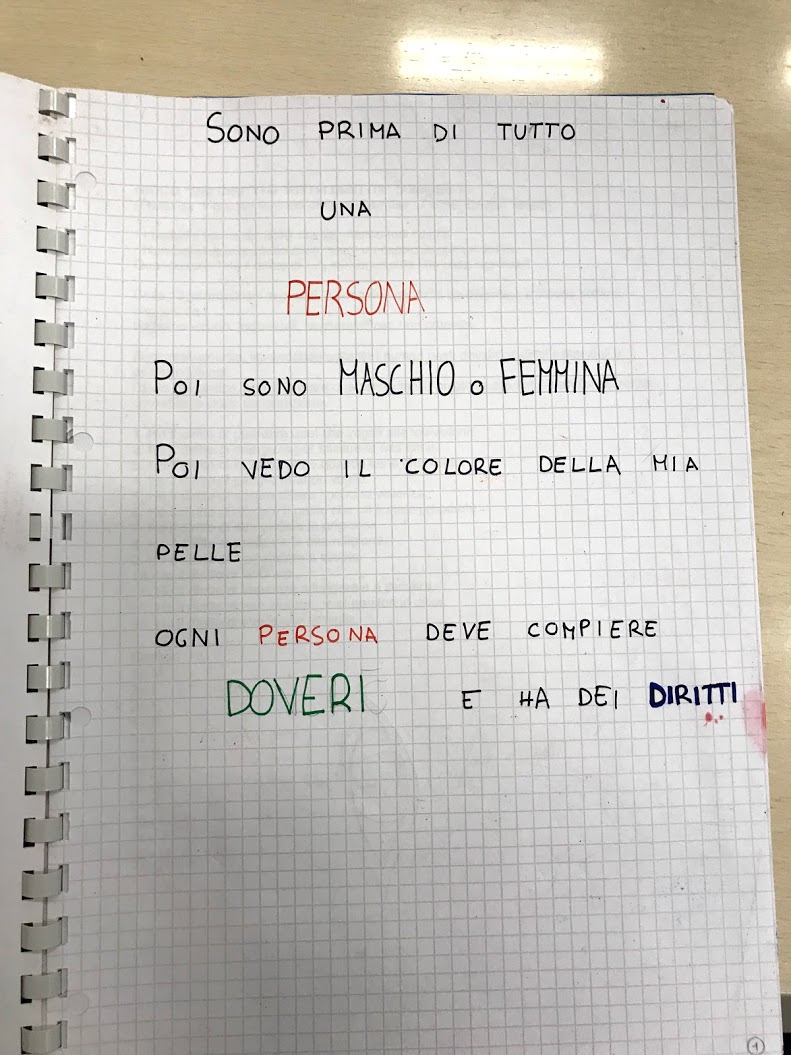 SONO PRIMA DI TUTTO
UNA
PERSONA
POI SONO MASCHIO O FEMMINA
POI VEDO IL COLORE DELLA MIA
PELLE
OGNI PERSONA DEVE COMPIERE
DOVERI E HA DEI DIRITTI
1